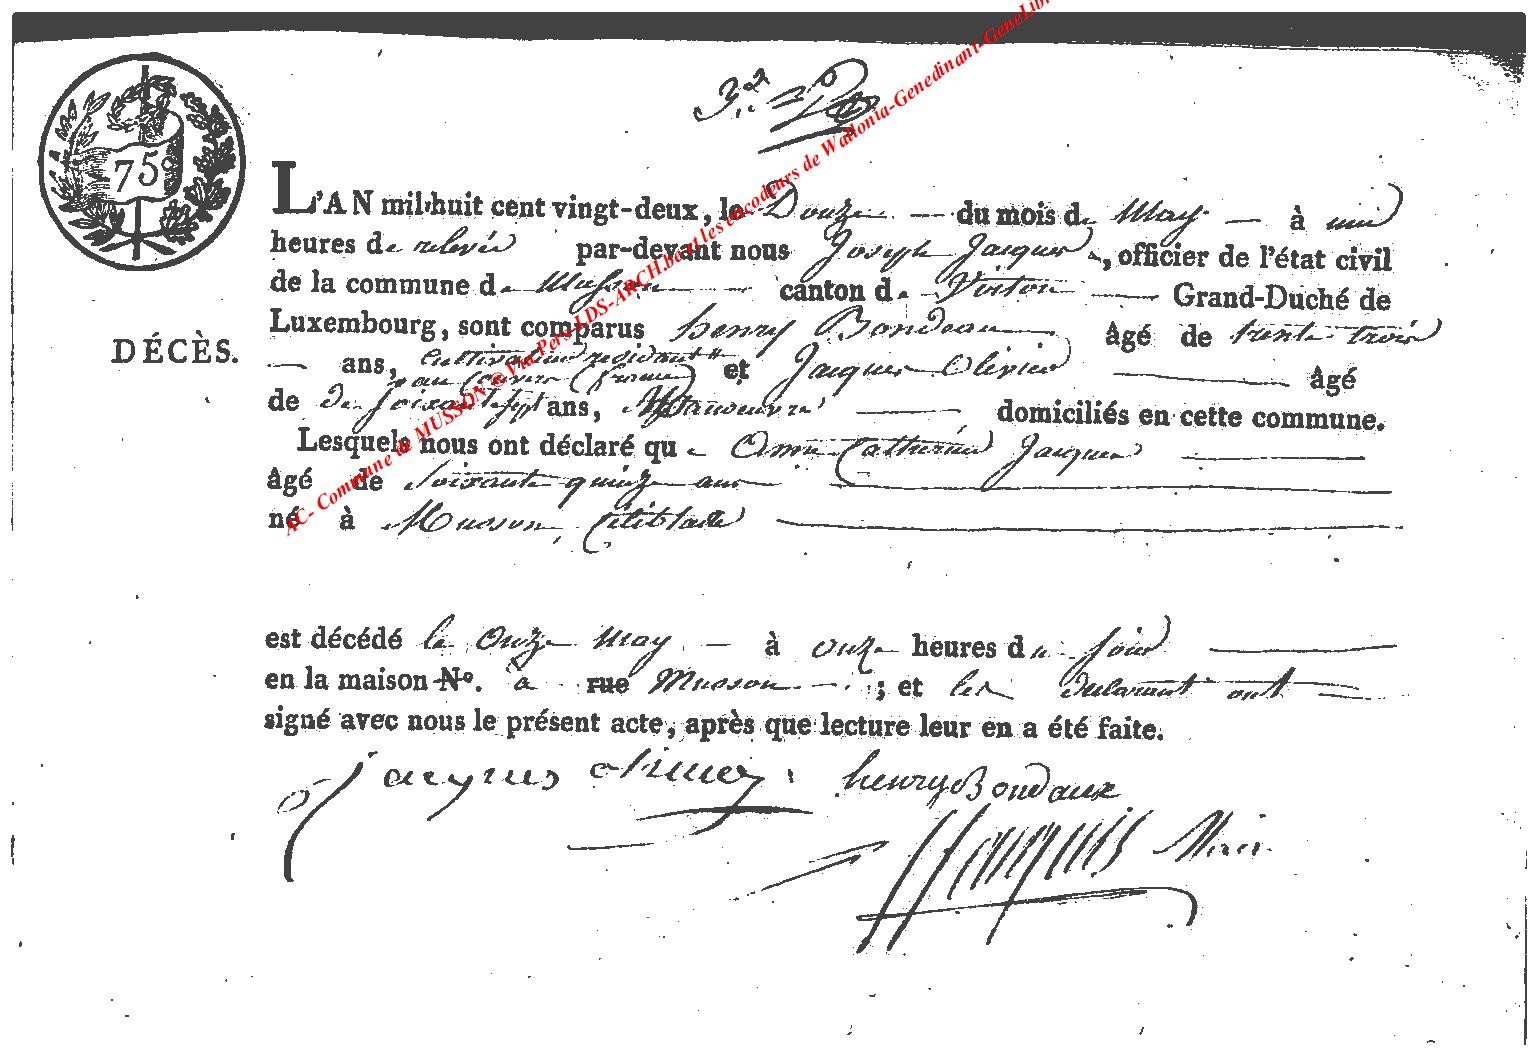 75c
L'AN mil huit cent vingt-deux, le Douze du mois de May à une
heures de relevée par-devant nous Joseph Jacques, officier de l'état civil
de la commune de Musson canton de Virton Grand-Duché de
Luxembourg, sont comparus henry Bondeau Âgé de trente trois
DÉCÈS.
ans, Cultivateur residant et Jacques Olivier âgé
de Soixante Sept ans, Manoeuvre domiciliés en cette commune.
Lesquels nous ont déclaré que Anne Catherine Jacques
âgé de Soixante quinze ans
né à Musson, Celibataire
est décédé le Onze May à onze heures du soir
en la maison N°. à rue Musson ; et les declarant ont
signé avec nous le présent acte, après que lecture leur en a été faite.
jacques henry Bondaux
Jacques Maire
AC- Commune de MUSSON © Via Pers-LDS-ARCH.be et les encodeurs de Wallonia-Genedinant-GeneLibr